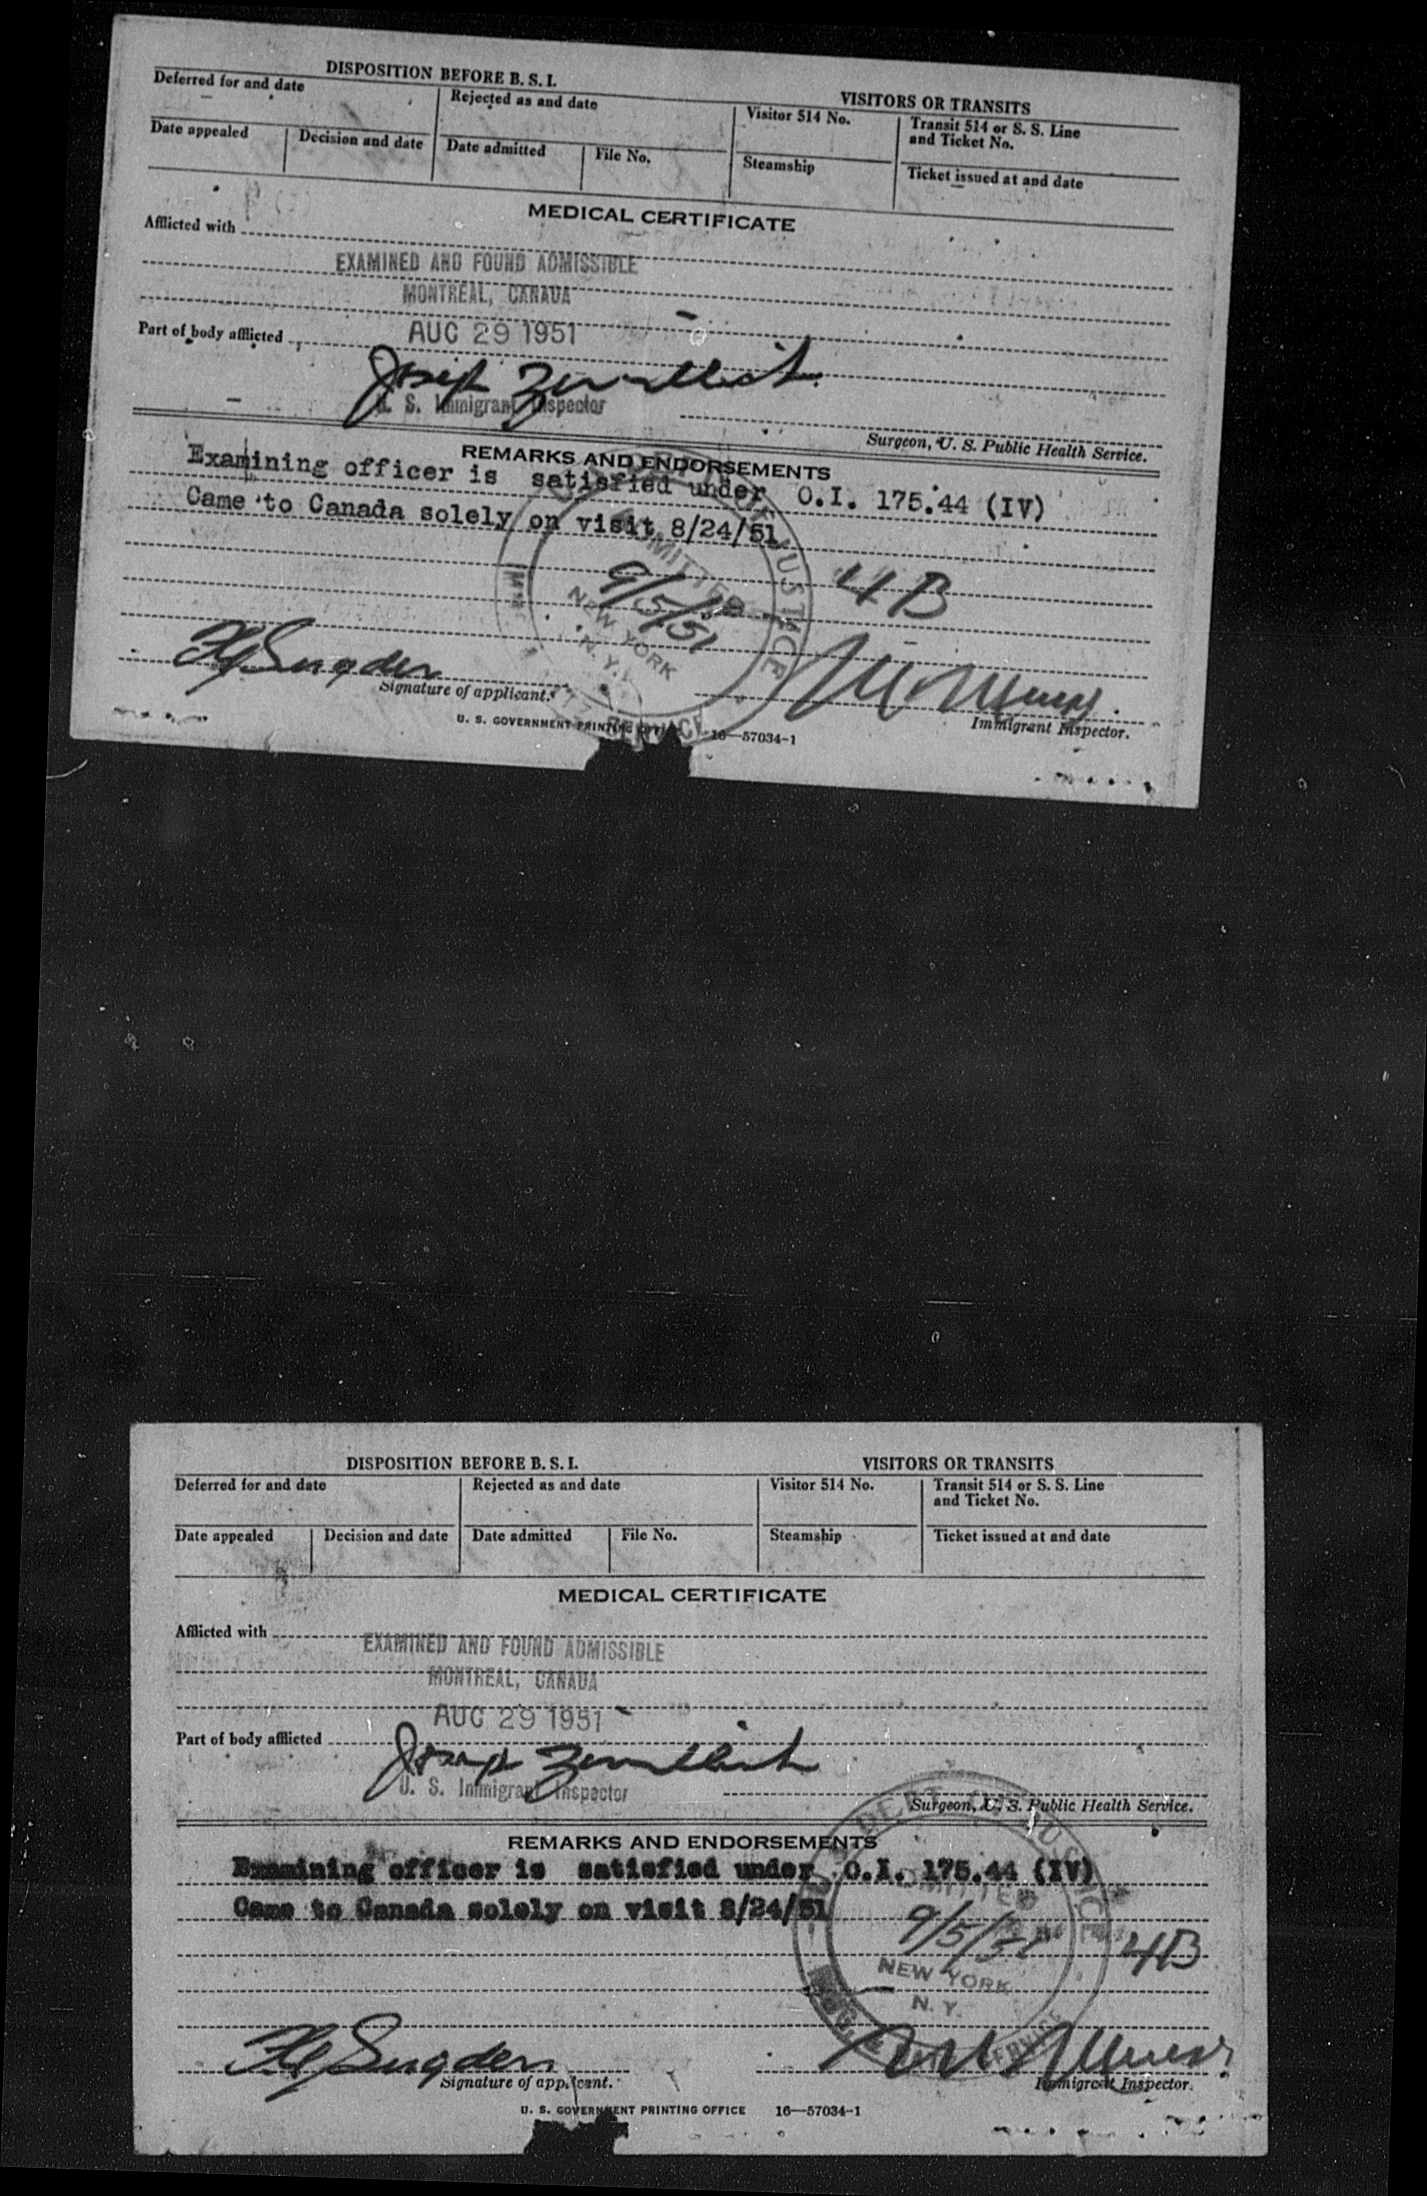 DISPOSITION BEFORE B. S. I.
VISITORS OR TRANSITS
Deferred for and date
Rejected as and date
Visitor 514 No.
Transit 514 or S. S. Line
and Ticket No.
Date appealed
Decision and date
Date admitted
File No.
Steamship
Ticket issued at and date
MEDICAL CERTIFICATE
Afflicted with
EXAMINED AND FOUND ADMISSIBLE
MONTREAL, CANADA
AUG 29 1951
Part of body afflicted
Joseph
U. S. Immigrant Inspector
Surgeon, U. S. Public Health Service.
REMARKS AND ENDORSEMENTS
Examining officer is satisfied under O.I. 175.44 (IV)
Came to Canada solely on visit 8/24/51
JUSTICE
ADMITTED
9/5/51
4B
NEW YORK
N. Y.
SERVICE
Sugden
Signature of applicant.
Immigrant Inspector.
U. S. GOVERNMENT PRINTING 16—57034-1
DISPOSITION BEFORE B. S. I.
VISITORS OR TRANSITS
Deferred for and date
Rejected as and date
Visitor 514 No.
Transit 514 or S. S. Line
and Ticket No.
Date appealed
Decision and date
Date admitted
File No.
Steamship
Ticket issued at and date
MEDICAL CERTIFICATE
Afflicted with
EXAMINED AND FOUND ADMISSIBLE
MONTREAL, CANADA
AUG 29 1951
Part of body afflicted
Joseph
U. S. Immigrant Inspector
Surgeon, U. S. Public Health Service.
REMARKS AND ENDORSEMENTS
Examining officer is satisfied under O.I. 175.44 (IV)
Came to Canada solely on visit 8/24/51
DEPT. OF JUSTICE
ADMITTED
9/5/51
4B
NEW YORK
N. Y.
SERVICE
Sugden
Signature of applicant.
Immigrant Inspector.
U. S. GOVERNMENT PRINTING OFFICE 16—57034-1